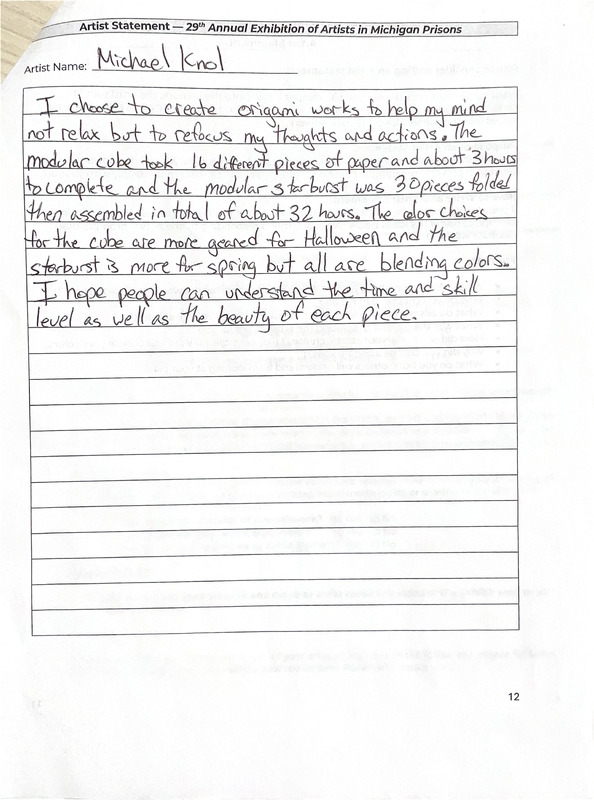 Artist Statement — 29th Annual Exhibition of Artists in Michigan Prisons
Artist Name: Michael Knol
I choose to create origami works to help my mind
not relax but to refocus my thoughts and actions. The
modular cube took 16 different pieces of paper and about 3 hours
to complete and the modular starburst was 30 pieces folded
then assembled in total of about 32 hours. The color choices
for the cube are more geared for Halloween and the
starburst is more for spring but all are blending colors.
I hope people can understand the time and skill
level as well as the beauty of each piece.
12